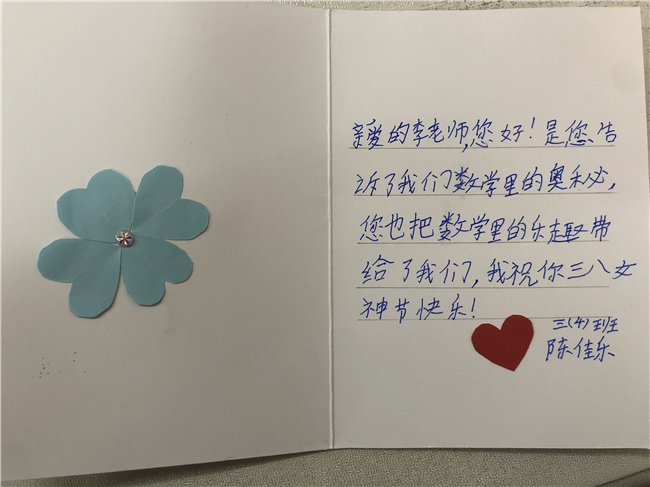 亲爱的李老师,您好!是您告
诉了我们数学里的奥秘,
您也把数学里的乐趣带
给了我们,我祝你三八女
神节快乐!
三(4)班
陈佳乐